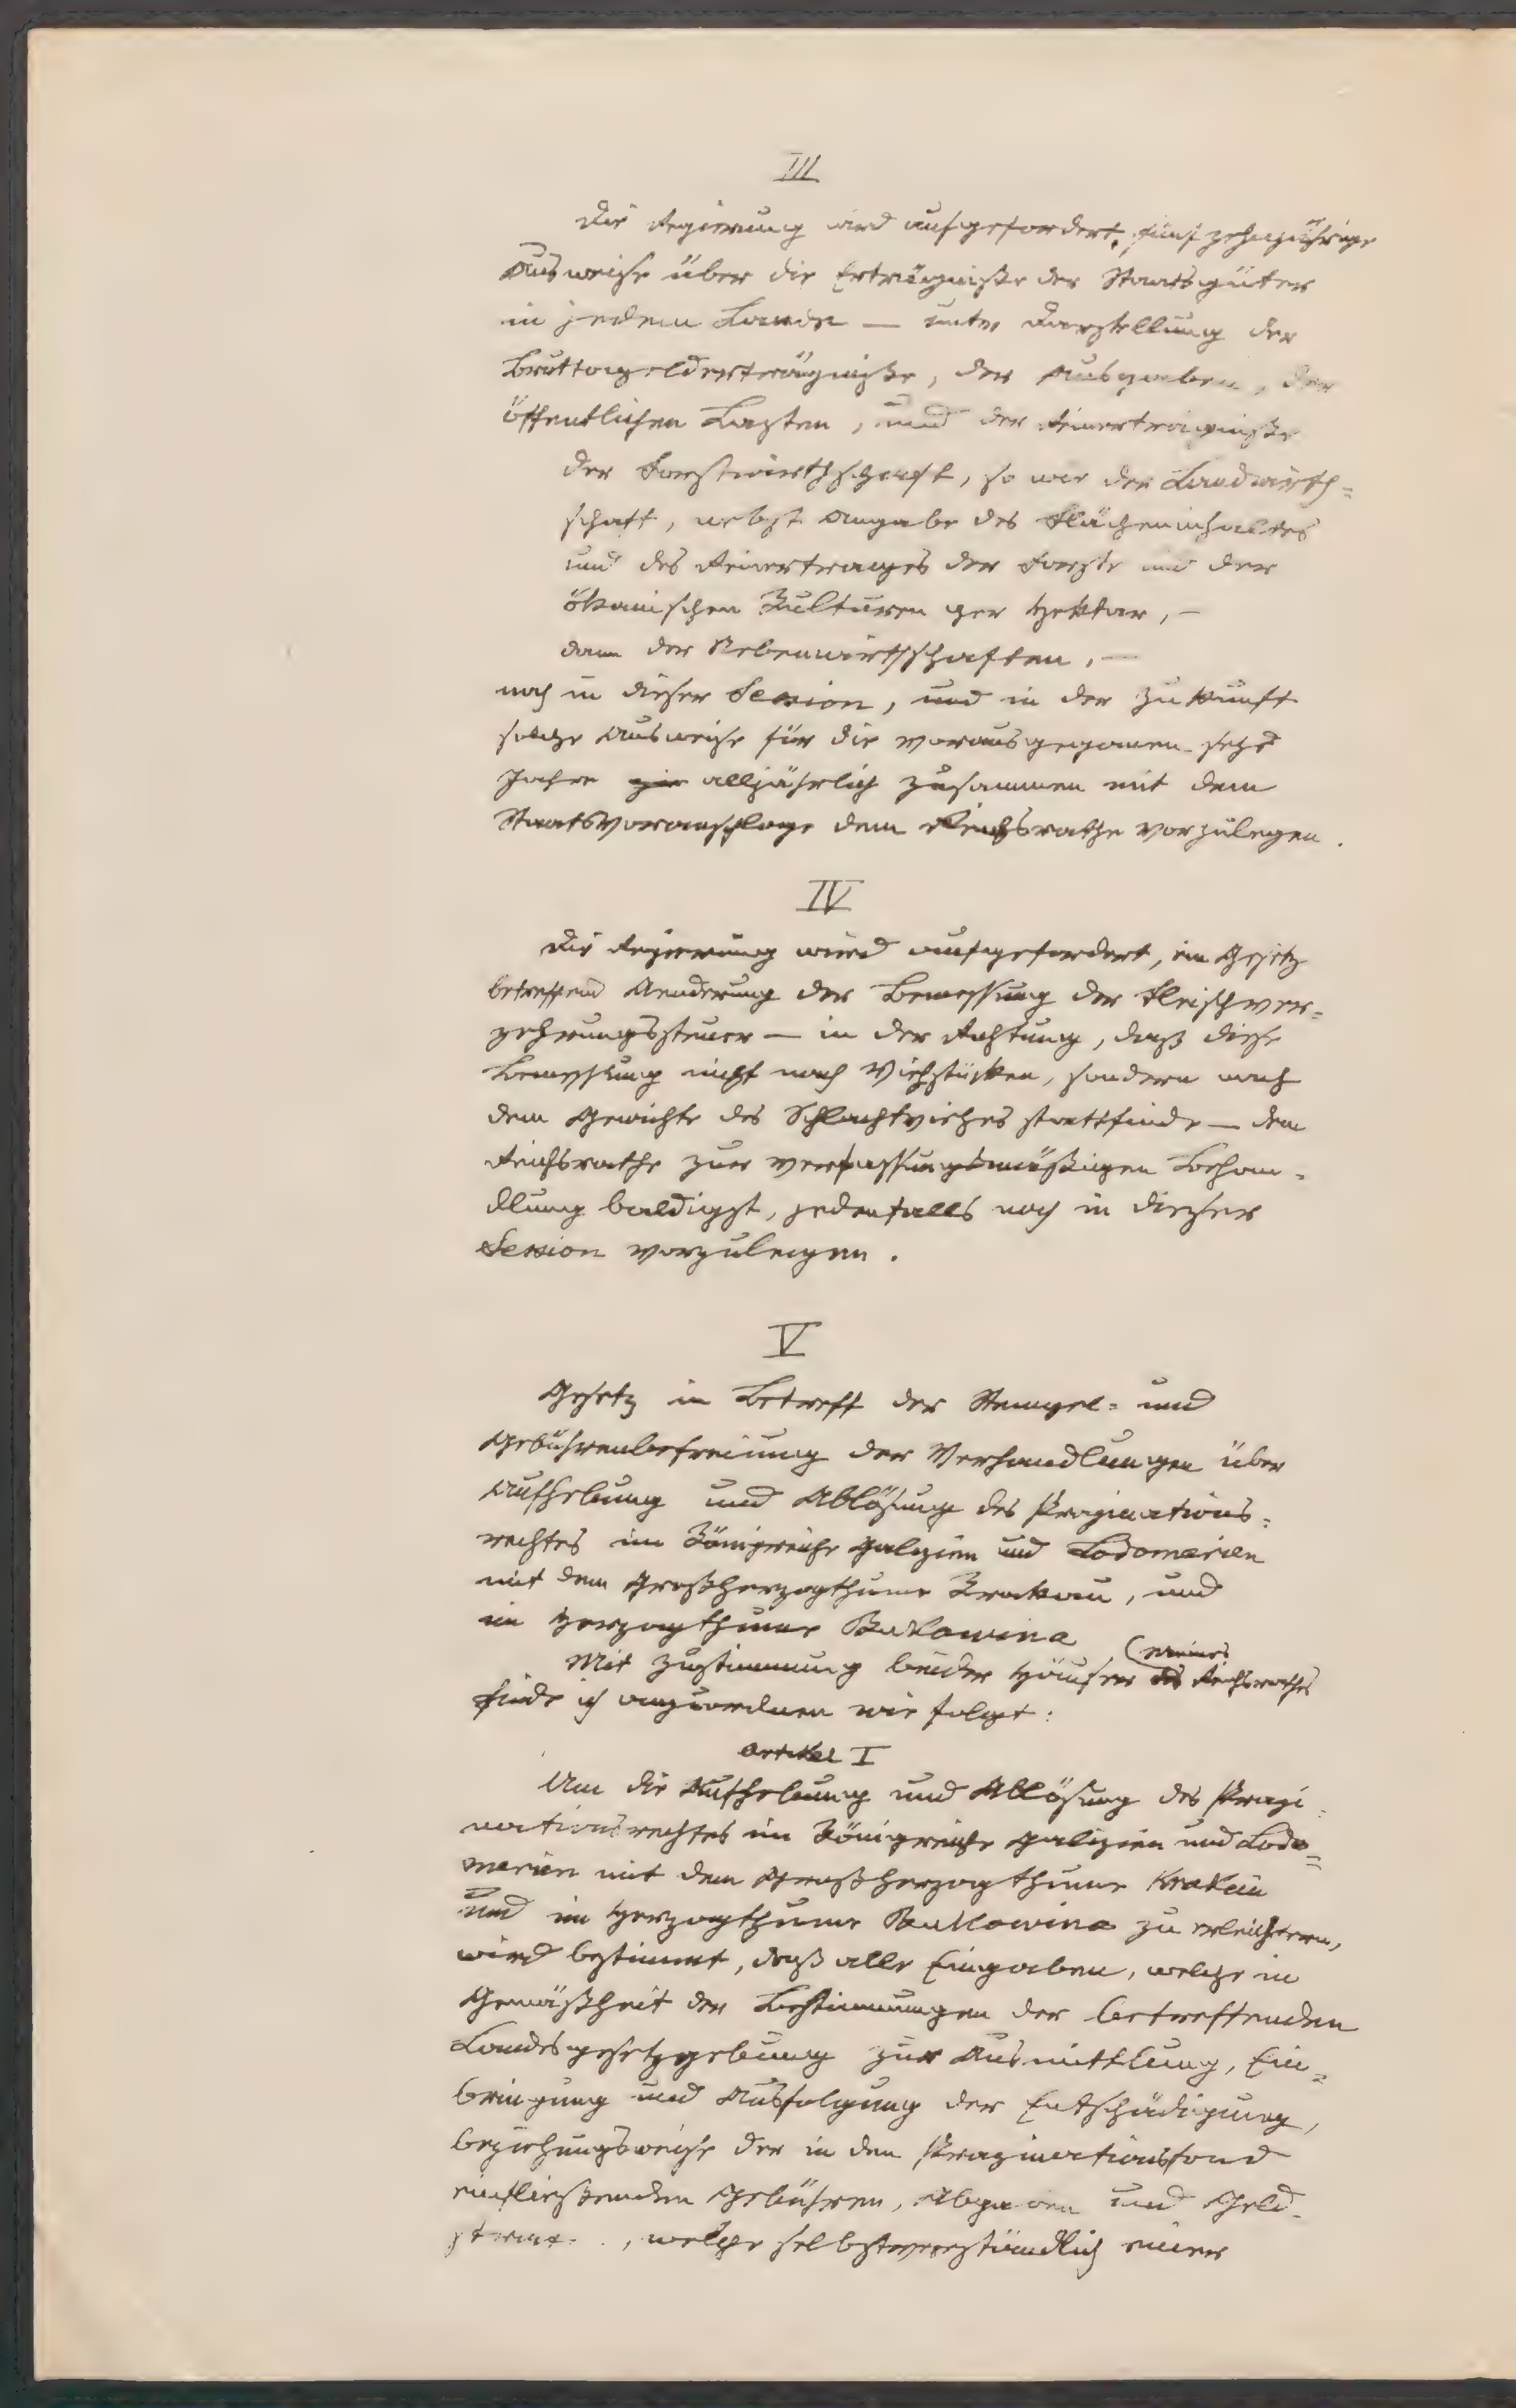 III
Die Regierung wird aufgefordert, fünfzehnjährige
Ausweise über die Erträgniße der Staatsgüter
in jedem Lande — unter Darstellung der
Bruttogelderträgniße, der Ausgaben, der
öffentlichen Lasten, und der Reinerträgniße
der Forstwirthschaft, so wie der Landwirth=
schaft, nebst Angabe des Flächeninhaltes
und des Reinertrages der Forste und der
ökonischen Kulturen per Hektar, —
dann der Nebenwirthschaften, —
noch in dieser Session, und in der Zukunft
solche Ausweise für die vorausgegangenen sechs
Jahre alljährlich zusammen mit dem
Staatsvoranschlage dem Reichsrathe vorzulegen.
IV
Die Regierung wird aufgefordert, ein Gesetz
betreffend Aenderung der Bemessung der Fleischver=
zehrungssteuer — in der Richtung, daß diese
Bemessung nicht nach Viehstücken, sondern nach
dem Gewichte des Schlachtviehes stattfinde — dem
Reichsrathe zur verfassungsmäßigen Behan=
dlung baldigst, jedenfalls noch in dieser
Session vorzulegen.
V
Gesetz in Betreff der Stempel= und
Gebührenbefreiung der Verhandlungen über
Aufhebung und Ablösung des Propinations=
rechtes im Königreiche Galizien und Lodomerien
mit dem Großherzogthume Krakau, und
im Herzogthume Bukowina
Mit Zustimmung beider Häuser meines Reichsrathes
finde ich anzuordnen wie folgt:
Artikel I
Um die Aufhebung und Ablösung des Propi=
nationsrechtes im Königreiche Galizien und Lodo=
merien mit dem Großherzogthume Krakau
und im Herzogthume Bukowina zu erleichtern,
wird bestimmt, daß alle Eingaben, welche in
Gemäßheit der Bestimmungen der betreffenden
Landesgesetzgebung zur Ausmittlung, Ein=
bringung und Ausfolgung der Entschädigung,
beziehungsweise der in den Propinationsfond
einfließenden Gebühren, Abgaben und Geld=
, welche selbstverständlich einer